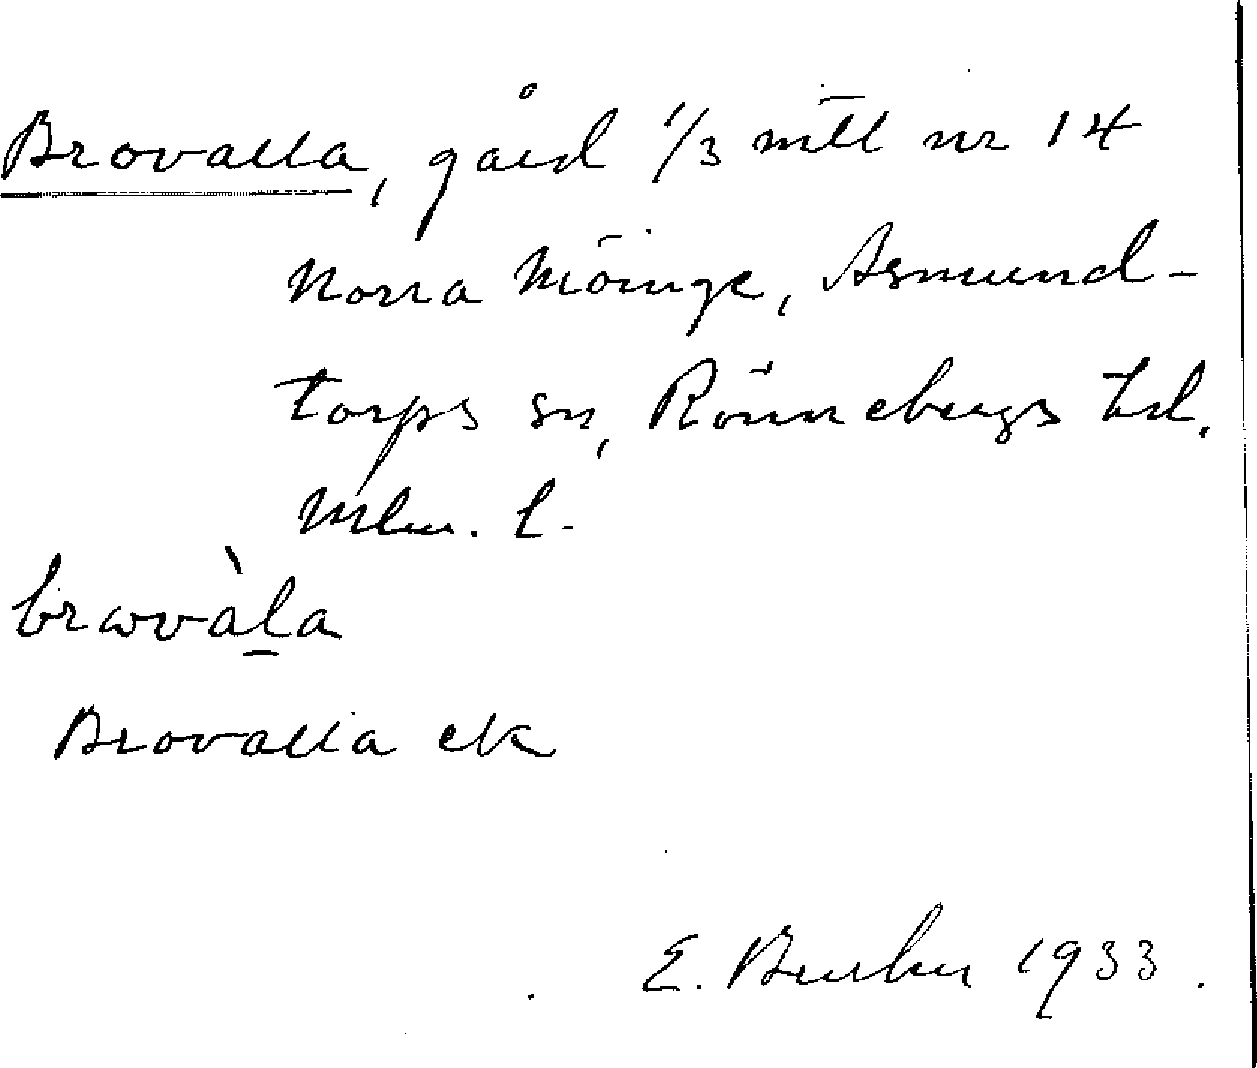 Brovalla, gård 1/3 mtl nr 14
Norra Möinge, Asmund-
torps sn, Rönnebergs hd.
Mlm. l.
brωvàla
Brovalla ek
E. 1933.